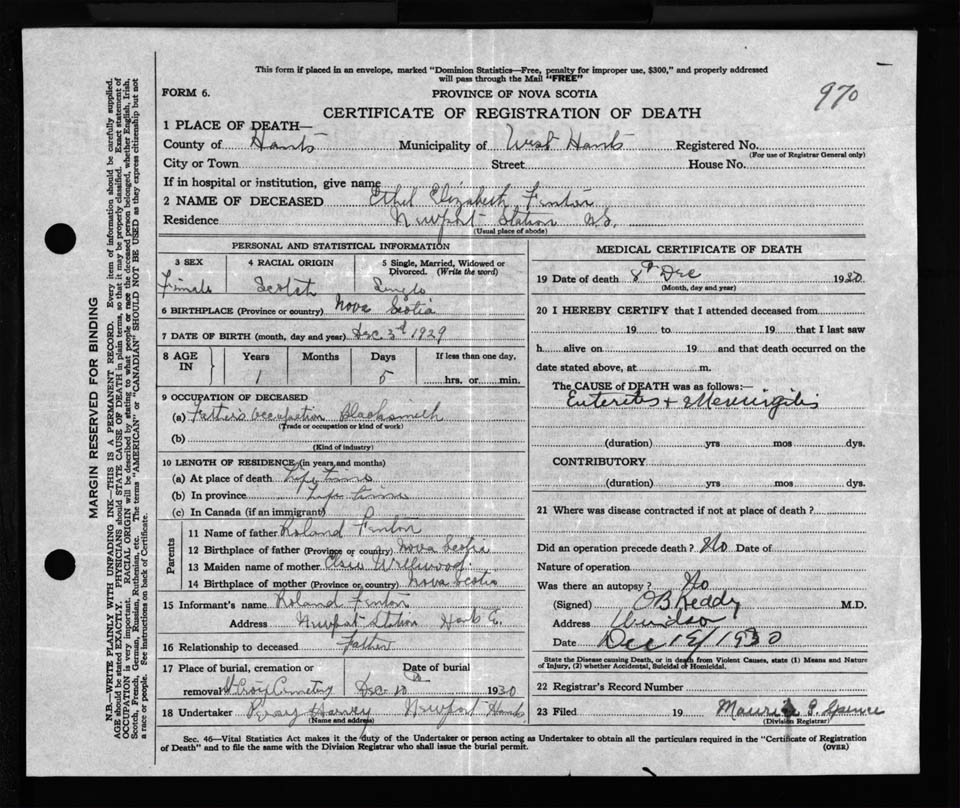 This form if placed in an envelope, marked "Dominion Statistics—Free, penalty for improper use, $300," and properly addressed
will pass through the Mail "FREE"
970
FORM 6. PROVINCE OF NOVA SCOTIA
CERTIFICATE OF REGISTRATION OF DEATH
1 PLACE OF DEATH—
County of Hants Municipality of West Hants Registered No.
(For use of Registrar General only)
City or Town Street House No.
If in hospital or institution, give name
2 NAME OF DECEASED Ethel Elizabeth Fenton
Residence Newport Station N.S.
(Usual place of abode)
PERSONAL AND STATISTICAL INFORMATION
3 SEX 4 RACIAL ORIGIN 5 Single, Married, Widowed or
Divorced. (Write the word)
Female Scotch Single
6 BIRTHPLACE (Province or country) Nova Scotia
7 DATE OF BIRTH (month, day and year) Dec 3rd 1929
8 AGE IN Years Months Days If less than one day,
1 5 hrs. or min.
9 OCCUPATION OF DECEASED
(a) Father's occupation Blacksmith
(Trade or occupation or kind of work)
(b)
(Kind of industry)
10 LENGTH OF RESIDENCE (in years and months)
(a) At place of death Life time
(b) In province Life time
(c) In Canada (if an immigrant)
Parents
11 Name of father Roland Fenton
12 Birthplace of father (Province or country) Nova Scotia
13 Maiden name of mother
14 Birthplace of mother (Province or country) Nova Scotia
15 Informant's name Roland Fenton
Address Newport Station
16 Relationship to deceased Father
17 Place of burial, cremation or Date of burial
removal St Croix Cemetery Dec 10th 1930
18 Undertaker Harvey Newport Hants
(Name and address)
MEDICAL CERTIFICATE OF DEATH
19 Date of death 8th Dec 1930
(Month, day and year)
20 I HEREBY CERTIFY that I attended deceased from
19 to 19 that I last saw
h alive on 19 and that death occurred on the
date stated above, at m.
The CAUSE of DEATH was as follows:—
Enteritis + Meningitis
(duration) yrs mos dys.
CONTRIBUTORY
(duration) yrs mos dys.
21 Where was disease contracted if not at place of death?
Did an operation precede death? No Date of
Nature of operation
Was there an autopsy? No
(Signed) O B Keddy M.D.
Address Windsor
Date Dec 19/1930
State the Disease causing Death, or in death from Violent Causes, state (1) Means and Nature
of Injury, (2) whether Accidental, Suicidal or Homicidal.
22 Registrar's Record Number
23 Filed 19 Maurice G. Spence
(Division Registrar)
Sec. 46—Vital Statistics Act makes it the duty of the Undertaker or person acting as Undertaker to obtain all the particulars required in the "Certificate of Registration
of Death" and to file the same with the Division Registrar who shall issue the burial permit. (OVER)
MARGIN RESERVED FOR BINDING
N.B.—WRITE PLAINLY WITH UNFADING INK—THIS IS A PERMANENT RECORD. Every item of information should be carefully supplied.
AGE should be stated EXACTLY. PHYSICIANS should STATE CAUSE OF DEATH in plain terms, so that it may be properly classified. Exact statement of
OCCUPATION is very important. RACIAL ORIGIN will be described by stating to what people or race the deceased person belonged, whether English, Irish,
Scotch, French, German, Russian, Ruthenian, etc. The terms "AMERICAN" or "CANADIAN" SHOULD NOT BE USED as they express citizenship but not
a race or people. See instructions on back of Certificate.